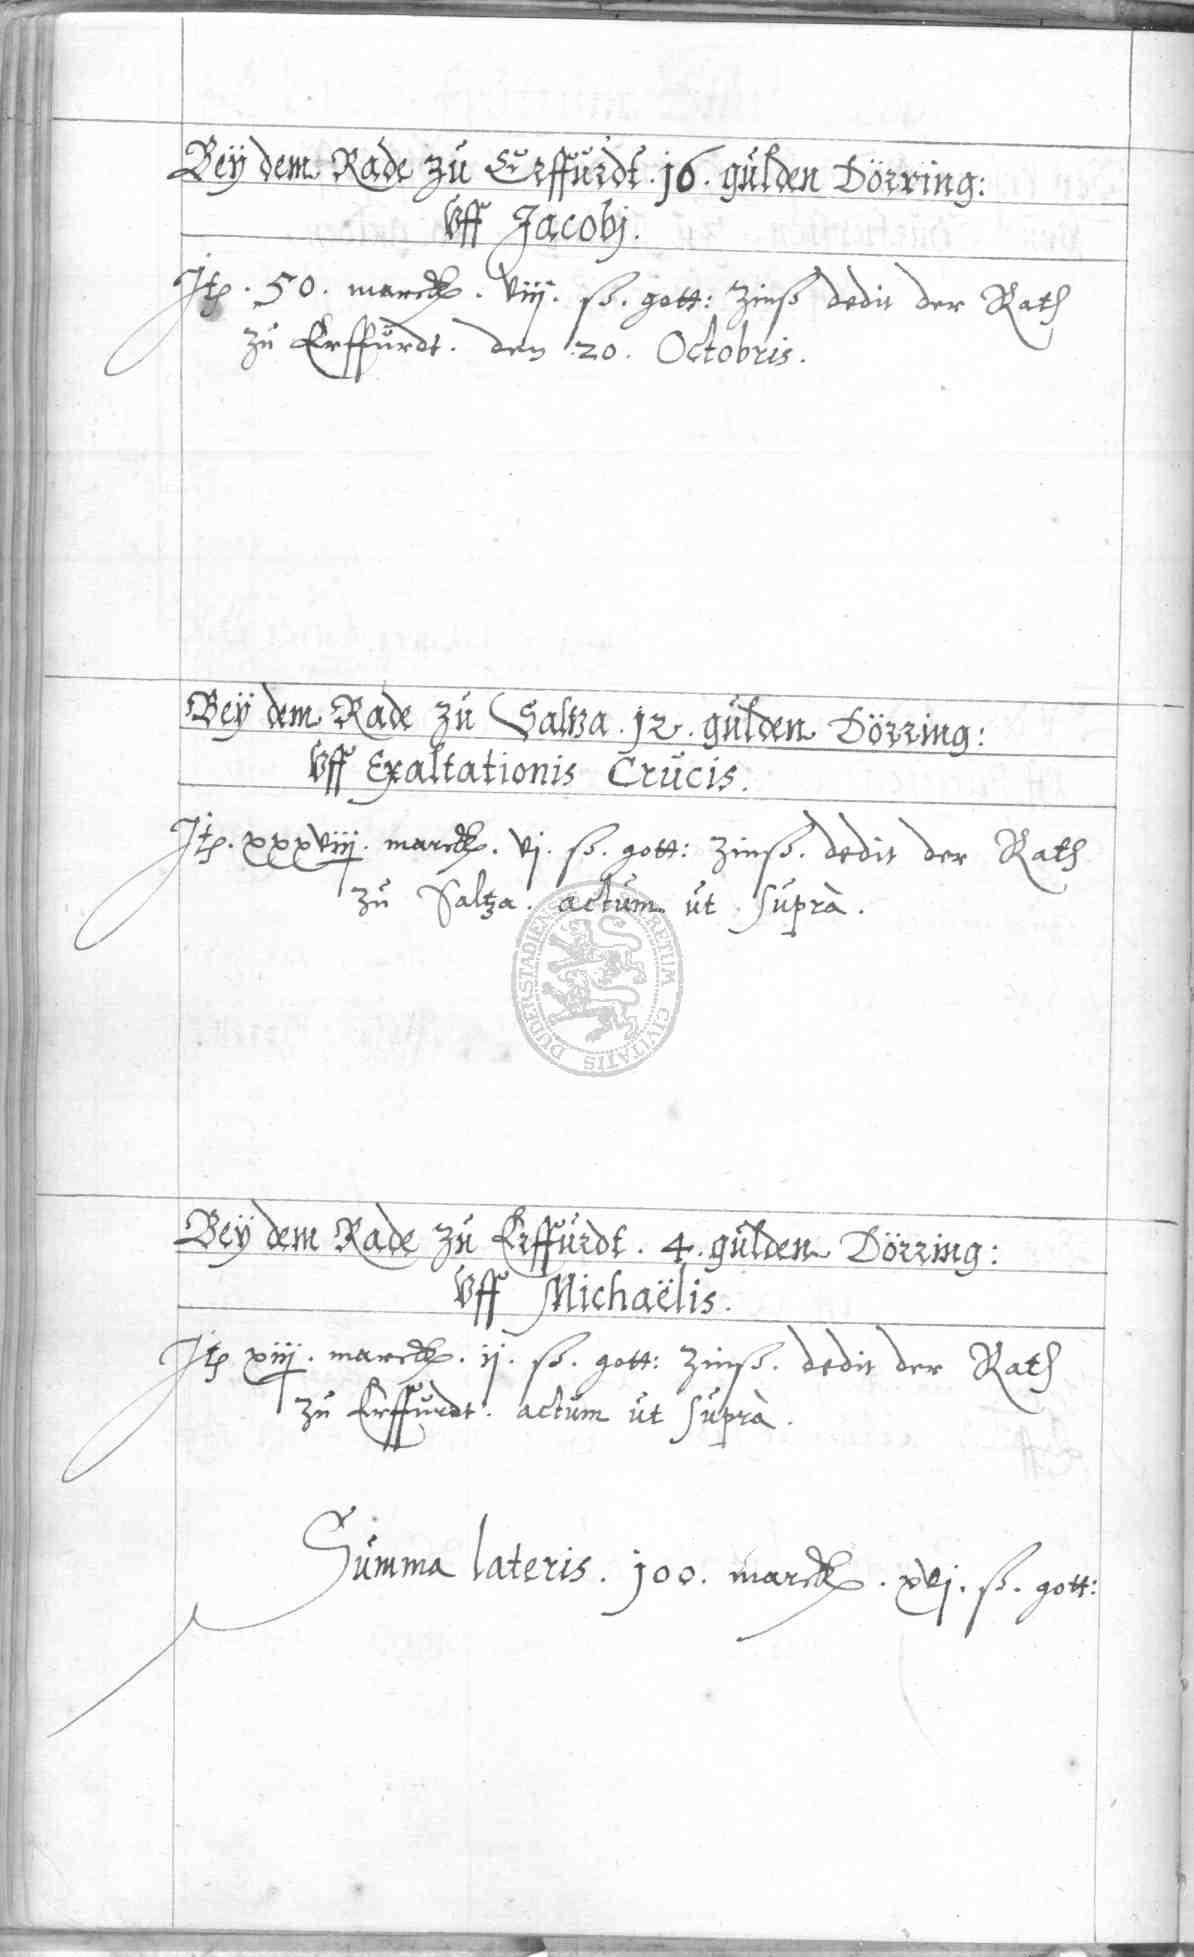 Beÿ dem Rade zu Erffurdt . 16 . gulden Dörring:
Vff Jacobj.
Jtp . 50 . marck . viij . ß . gott: Zinß dedit der Rath
zu Erffurdt . den 20 . Octobris .
Beÿ dem Rade zu Saltza . 12 . gulden Dörring:
Vff Exaltationis Crucis.
Jtp . xxxviij . marck . vj . ß . gott: Zinß . dedit der Rath
zu Saltza . actum ut supra .
SECRETUM CIVITATIS DUDERSTADIENS
Beÿ dem Rade zu Erffurdt . 4 . gulden Dörring:
Vff Michaëlis .
Jtp xiij . marck . ij . ß . gott: Zinß . dedit der Rath
zu Erffurdt . actum ut suprà .
Summa lateris . 100 . marck . xvj . ß . gott: